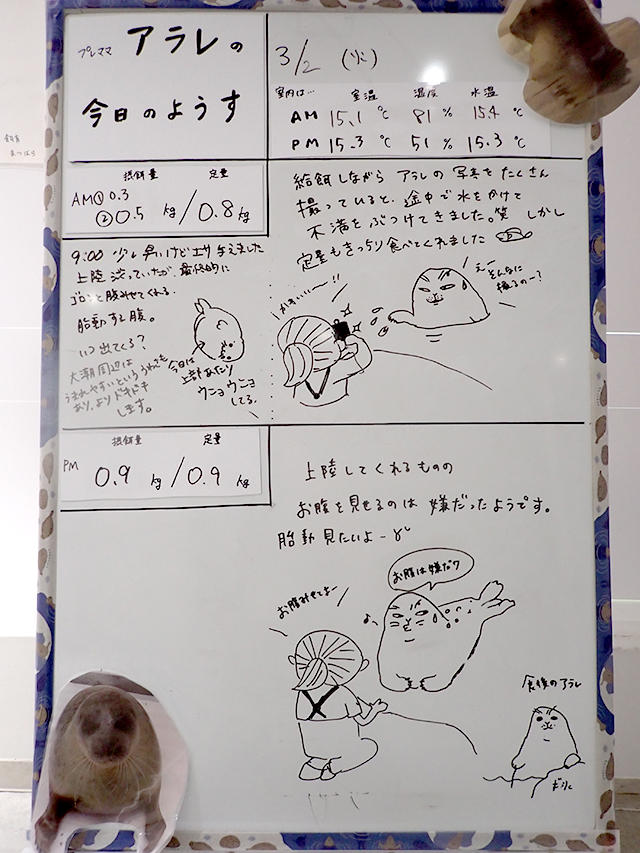 プレママ アラレの
今日のようす
3/2 (火)
室内は… 室温 湿度 水温
AM 15.1℃ 81% 15.4℃
PM 15.3℃ 51% 15.3℃
摂餌量 定量
AM① 0.3
② 0.5 kg / 0.8 kg
9:00 少し早いけどエサ与えました
上陸渋っていたが、最終的に
ゴロンと腹みせてくれる。
胎動すし腹。
いつ出てくる?
大潮周辺は
うまれやすいといううわさも
あり、よりドキドキ
します。
今日は
上部あたり
ウニョウニョ
してる。
給餌しながら アラレの 写真をたくさん
撮っていると、途中で水をかけて
不満をぶつけてきました。笑 しかし
定量もきっちり食べてくれました
かわいい〜!!
えー
そんなに
撮るのー?
摂餌量 定量
PM 0.9 kg / 0.9 kg
上陸してくれるものの
お腹を見せるのは 嫌だったようです。
胎動 見たいよー
お腹は嫌だワ
お腹みせてよー
食後のアラレ